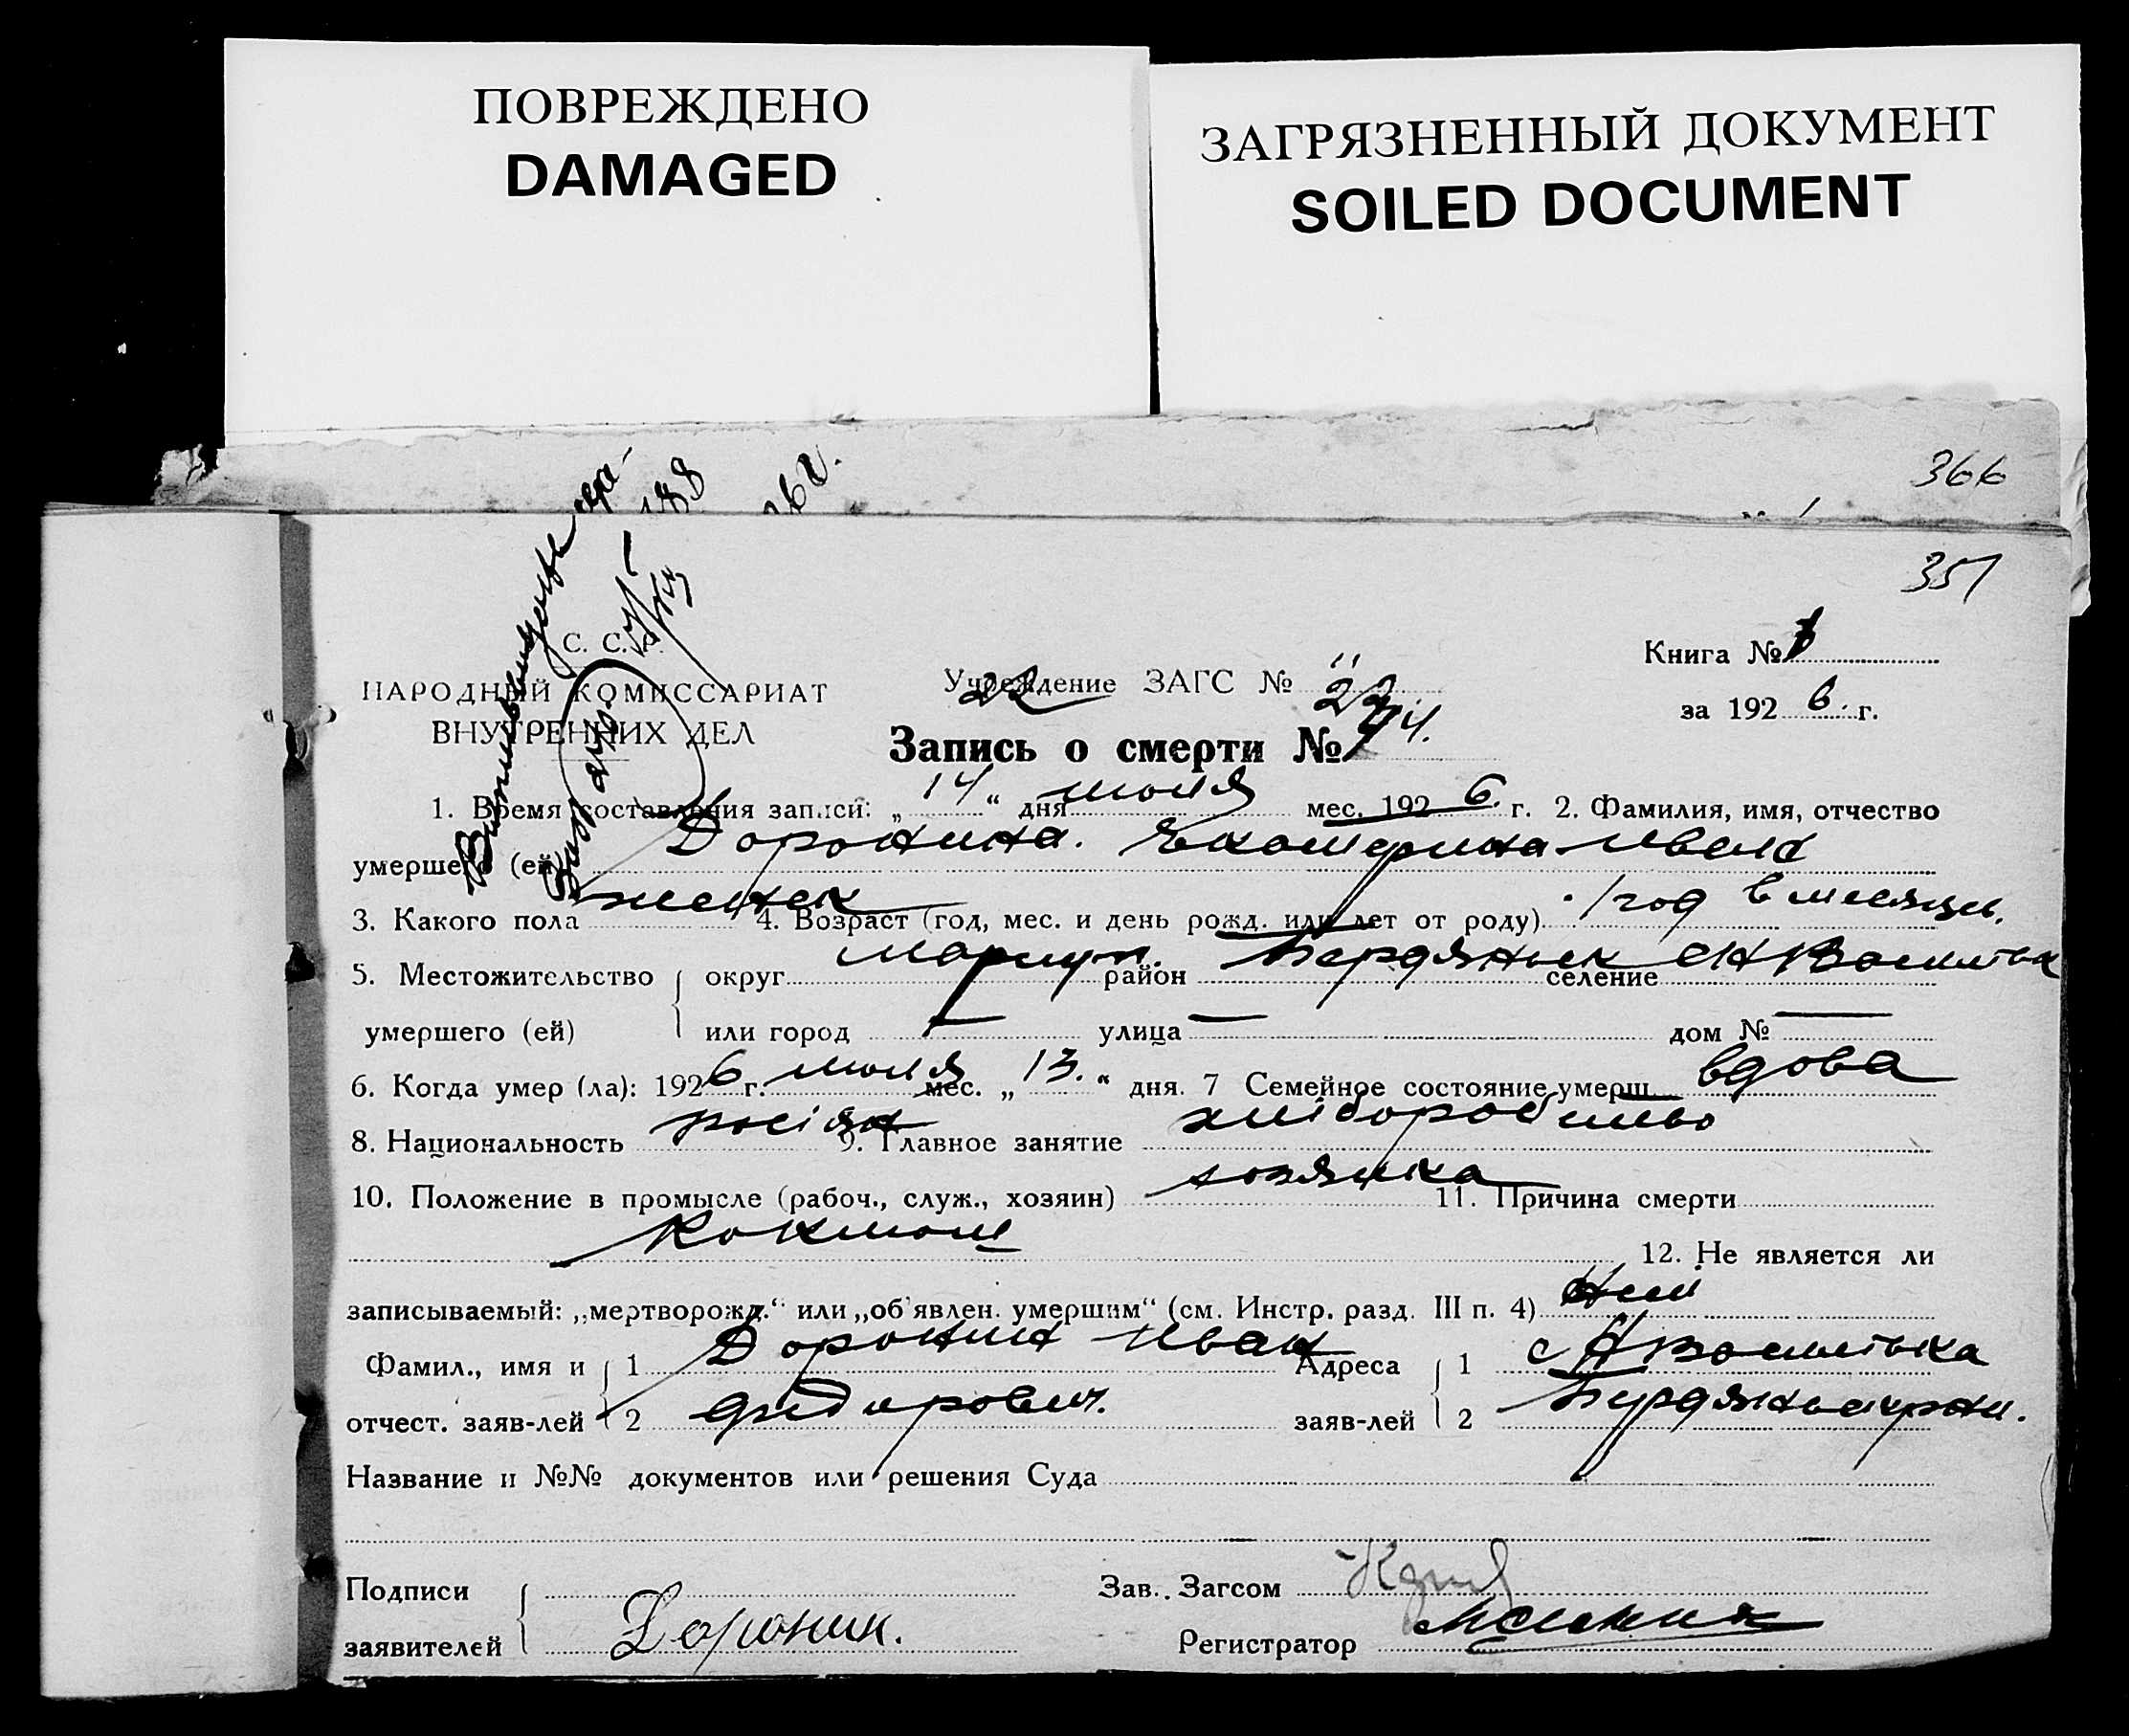 ПОВРЕЖДЕНО
DAMAGED
ЗАГРЯЗНЕННЫЙ ДОКУМЕНТ
SOILED DOCUMENT
366
188
26 г.
351
С. С.
Книга №
НАРОДНЫЙ КОМИССАРИАТ
ВНУТРЕННИХ ДЕЛ
Учреждение ЗАГС №
22
за 1926. г.
Запись о смерти №
1. Время составления записи: „14“ дня июля мес. 1926. г. 2. Фамилия, имя, отчество
умершего (ей) Доронина. Екатерина Иван
3. Какого пола женск 4. Возраст (год, мес. и день рожд. или лет от роду) 1 год 6 месяцев.
5. Местожительство округ Мариуп. район Бердянск селение НВасилівка
умершего (ей) или город — улица — дом № —
6. Когда умер (ла): 1926 г. июля мес. „13.“ дня. 7 Семейное состояние умерш. вдова
8. Национальность росіян 9. Главное занятие хліборобство
10. Положение в промысле (рабоч., служ., хозяин) хозяйка 11. Причина смерти
Коклюш 12. Не является ли
записываемый: „мертворожд.“ или „об'явлен. умершим“ (см. Инстр. разд. III п. 4) Ні
Фамил., имя и 1 Доронин Иван Адреса 1 с НВасилівка
отчест. заяв-лей 2 Фидорович. заяв-лей 2
Название и №№ документов или решения Суда
Подписи
заявителей Доронин.
Зав. Загсом
Регистратор